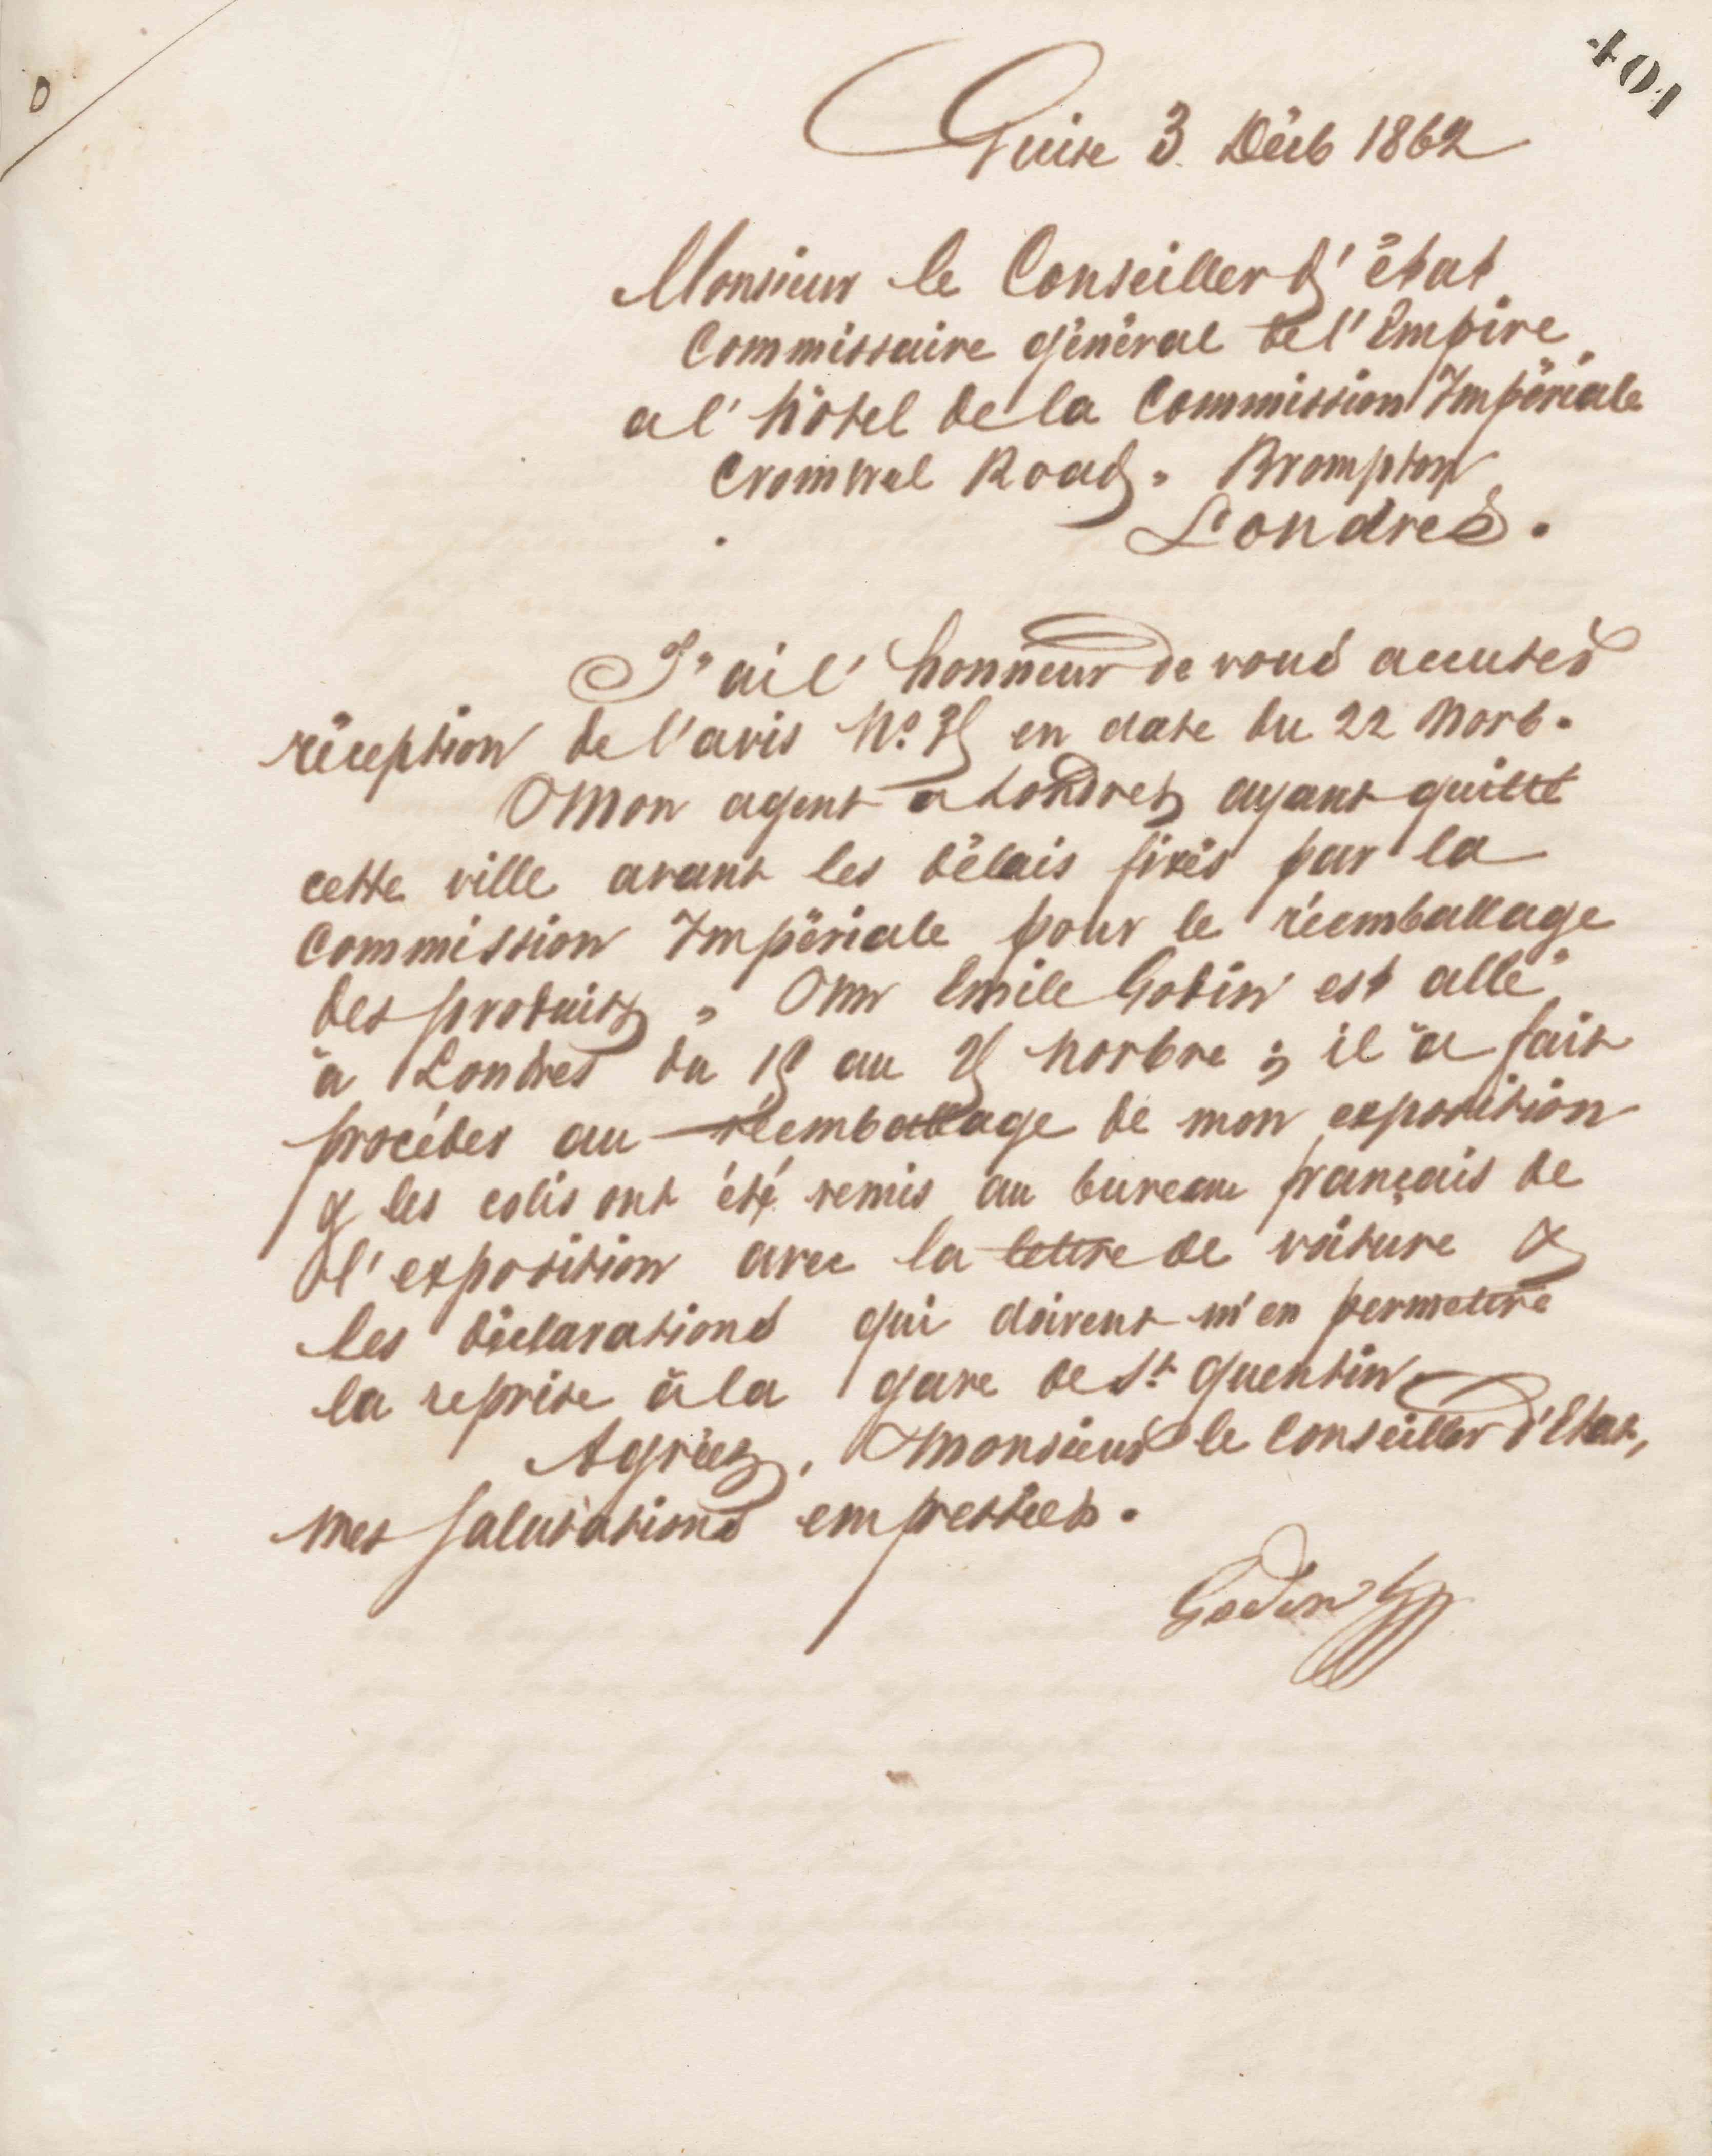 401
Guise 3 Décb 1862
Monsieur le Conseiller d'état
Commissaire général de l'Empire
a l'hôtel de la Commission Impériale
Cromwel Road, Brompton
Londres.
J'ai l'honneur de vous accuser
réception de l'avis No. en date du 22 Novb.
Mon agent a Londres ayant quitté
cette ville avant les délais fixés par la
Commission Impériale pour le réemballage
des produits, Mr Emile Godin est allé
à Londres du au Novbre ; il a fait
procéder au réemballage de mon exposition
& les colis ont été remis au bureau français de
l'exposition avec la lettre de voiture &
les déclarations qui doivent m'en permettre
la reprise à la gare de St. Quentin.
Agréez, Monsieur le Conseiller d'Etat,
mes salutations empressées.
Godin